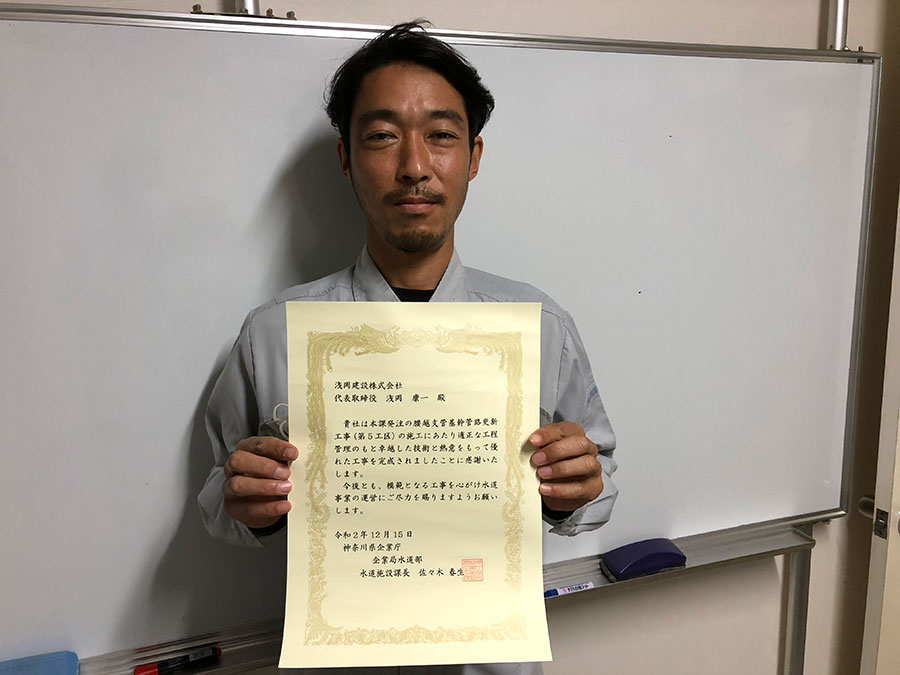 浅岡建設株式会社
代表取締役　浅岡　康一　殿
貴社は本課発注の腰越支管基幹管路更新
工事（第５工区）の施工にあたり適正な工程
管理のもと卓越した技術と熱意をもって優
れた工事を完成されましたことに感謝いた
します。
今後とも、模範となる工事を心がけ水道
事業の運営にご尽力を賜りますようお願い
します。
令和２年１２月１５日
神奈川県企業庁
企業局水道部
水道施設課長　佐々木　春生